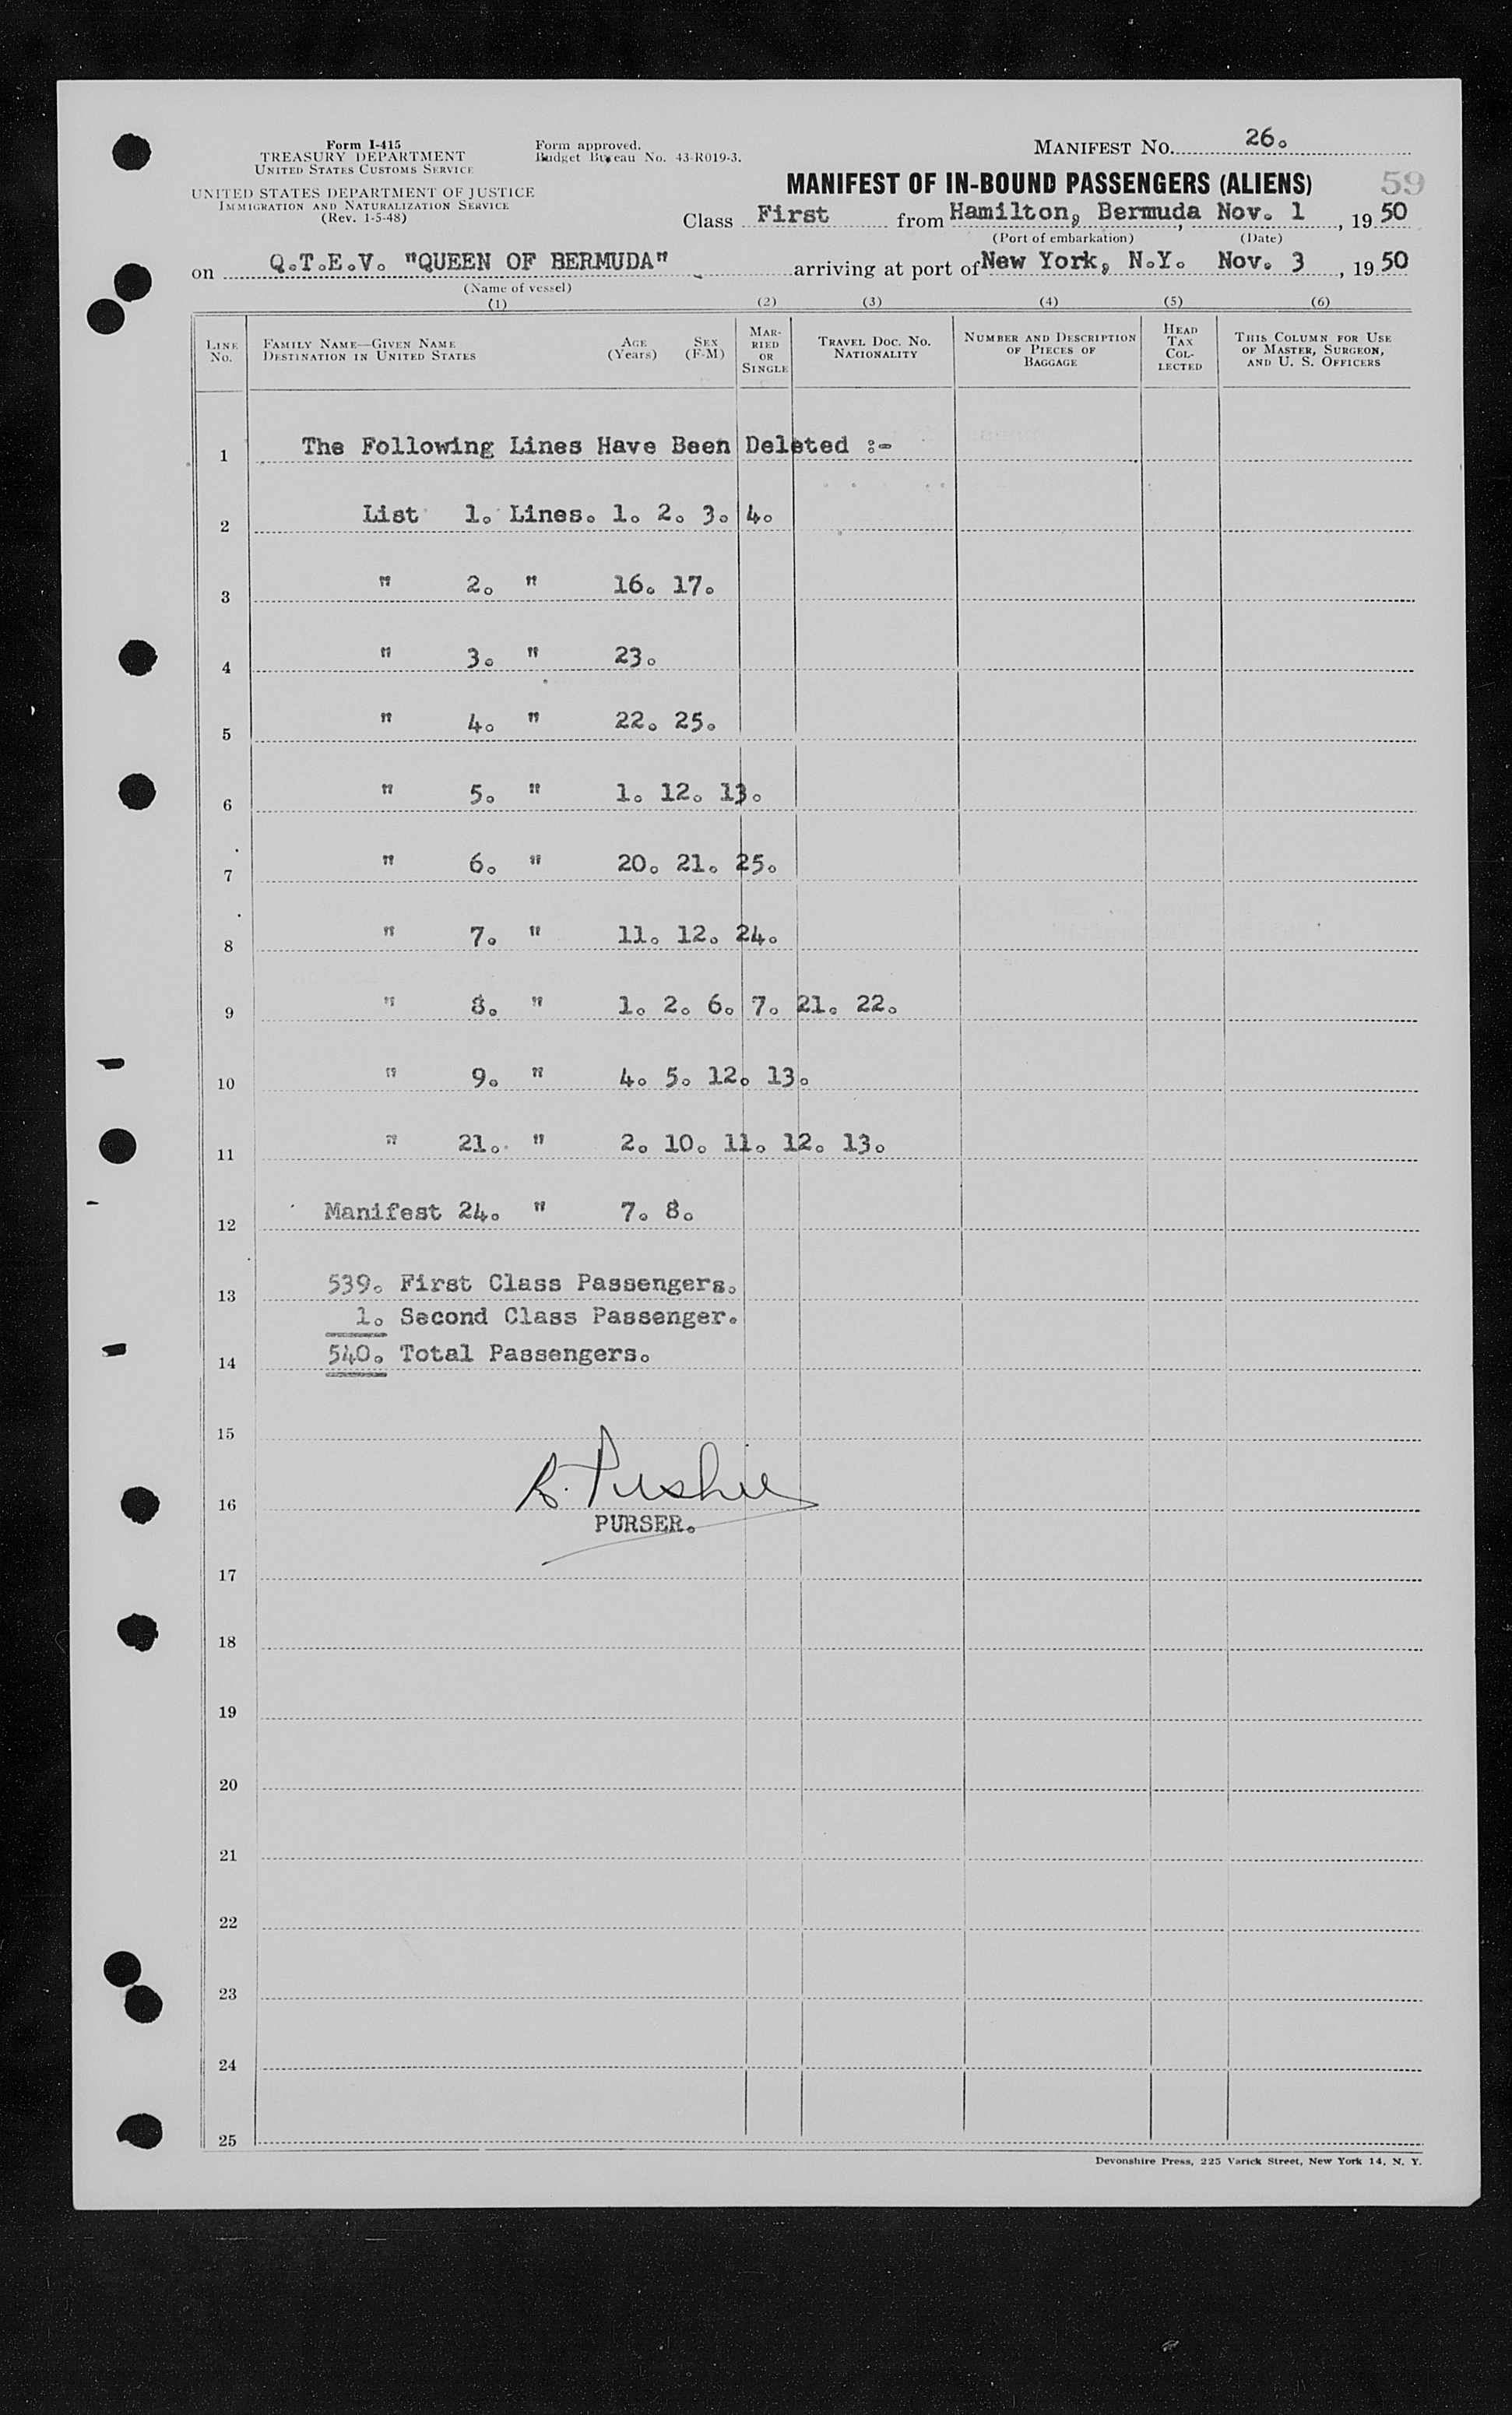 Form I-415
TREASURY DEPARTMENT
UNITED STATES CUSTOMS SERVICE
UNITED STATES DEPARTMENT OF JUSTICE
IMMIGRATION AND NATURALIZATION SERVICE
(Rev. 1-5-48)
Form approved.
Budget Bureau No. 43-R019-3.
MANIFEST NO. 26.
MANIFEST OF IN-BOUND PASSENGERS (ALIENS) 59
Class First from Hamilton, Bermuda, Nov. 1, 19 50
(Port of embarkation) (Date)
on Q.T.E.V. "QUEEN OF BERMUDA" arriving at port of New York, N.Y. Nov. 3, 19 50
(Name of vessel)
(1) (2) (3) (4) (5) (6)
LINE NO.
FAMILY NAME—GIVEN NAME
DESTINATION IN UNITED STATES
AGE (Years)
SEX (F-M)
MARRIED OR SINGLE
TRAVEL DOC. NO.
NATIONALITY
NUMBER AND DESCRIPTION
OF PIECES OF
BAGGAGE
HEAD
TAX
COL-
LECTED
THIS COLUMN FOR USE
OF MASTER, SURGEON,
AND U. S. OFFICERS
1 The Following Lines Have Been Deleted :-
2 List 1. Lines. 1. 2. 3. 4.
3 " 2. " 16. 17.
4 " 3. " 23.
5 " 4. " 22. 25.
6 " 5. " 1. 12. 13.
7 " 6. " 20. 21. 25.
8 " 7. " 11. 12. 24.
9 " 8. " 1. 2. 6. 7. 21. 22.
10 " 9. " 4. 5. 12. 13.
11 " 21. " 2. 10. 11. 12. 13.
12 Manifest 24. " 7. 8.
13 539. First Class Passengers.
1. Second Class Passenger.
14 540. Total Passengers.
15
16
PURSER.
17
18
19
20
21
22
23
24
25
Devonshire Press, 225 Varick Street, New York 14, N. Y.